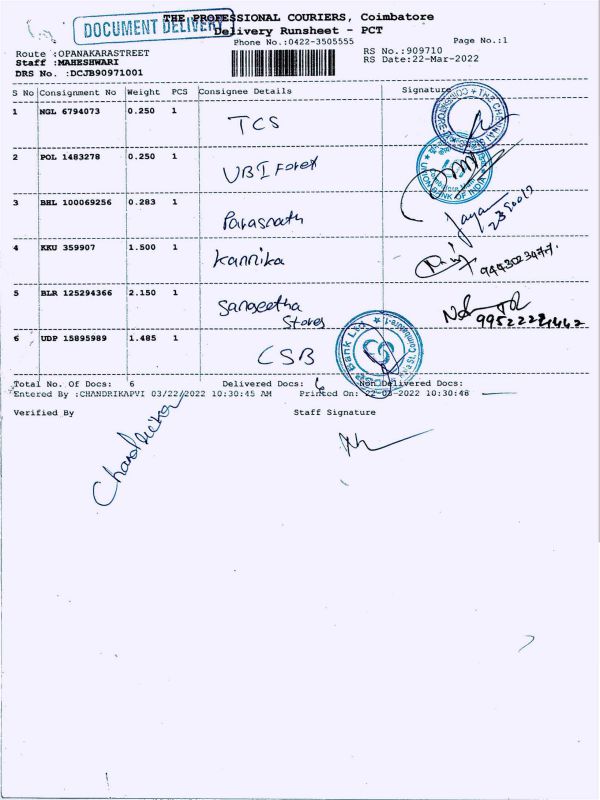 DOCUMENT DELIVERY
THE PROFESSIONAL COURIERS, Coimbatore
Delivery Runsheet - PCT
Phone No.:0422-3505555
Page No.:1
Route :OPANAKARASTREET
RS No.:909710
Staff :MAHESHWARI
RS Date:22-Mar-2022
DRS No. :DCJB90971001
S No Consignment No Weight PCS Consignee Details Signature
1 NGL 6794073 0.250 1 TCS
2 POL 1483278 0.250 1 UBI Forex
UNION BANK OF INDIA
3 BHL 100069256 0.283 1 Parasnath
4 KKU 359907 1.500 1 Kannika
5 BLR 125294366 2.150 1 Sangeetha
Stores
6 UDP 15895989 1.485 1 CSB
Bank Ltd
Total No. Of Docs: 6 Delivered Docs: 6 Non Delivered Docs:
Entered By :CHANDRIKAPVI 03/22/2022 10:30:45 AM Printed On: 22-03-2022 10:30:48
Verified By Staff Signature
Chandrika